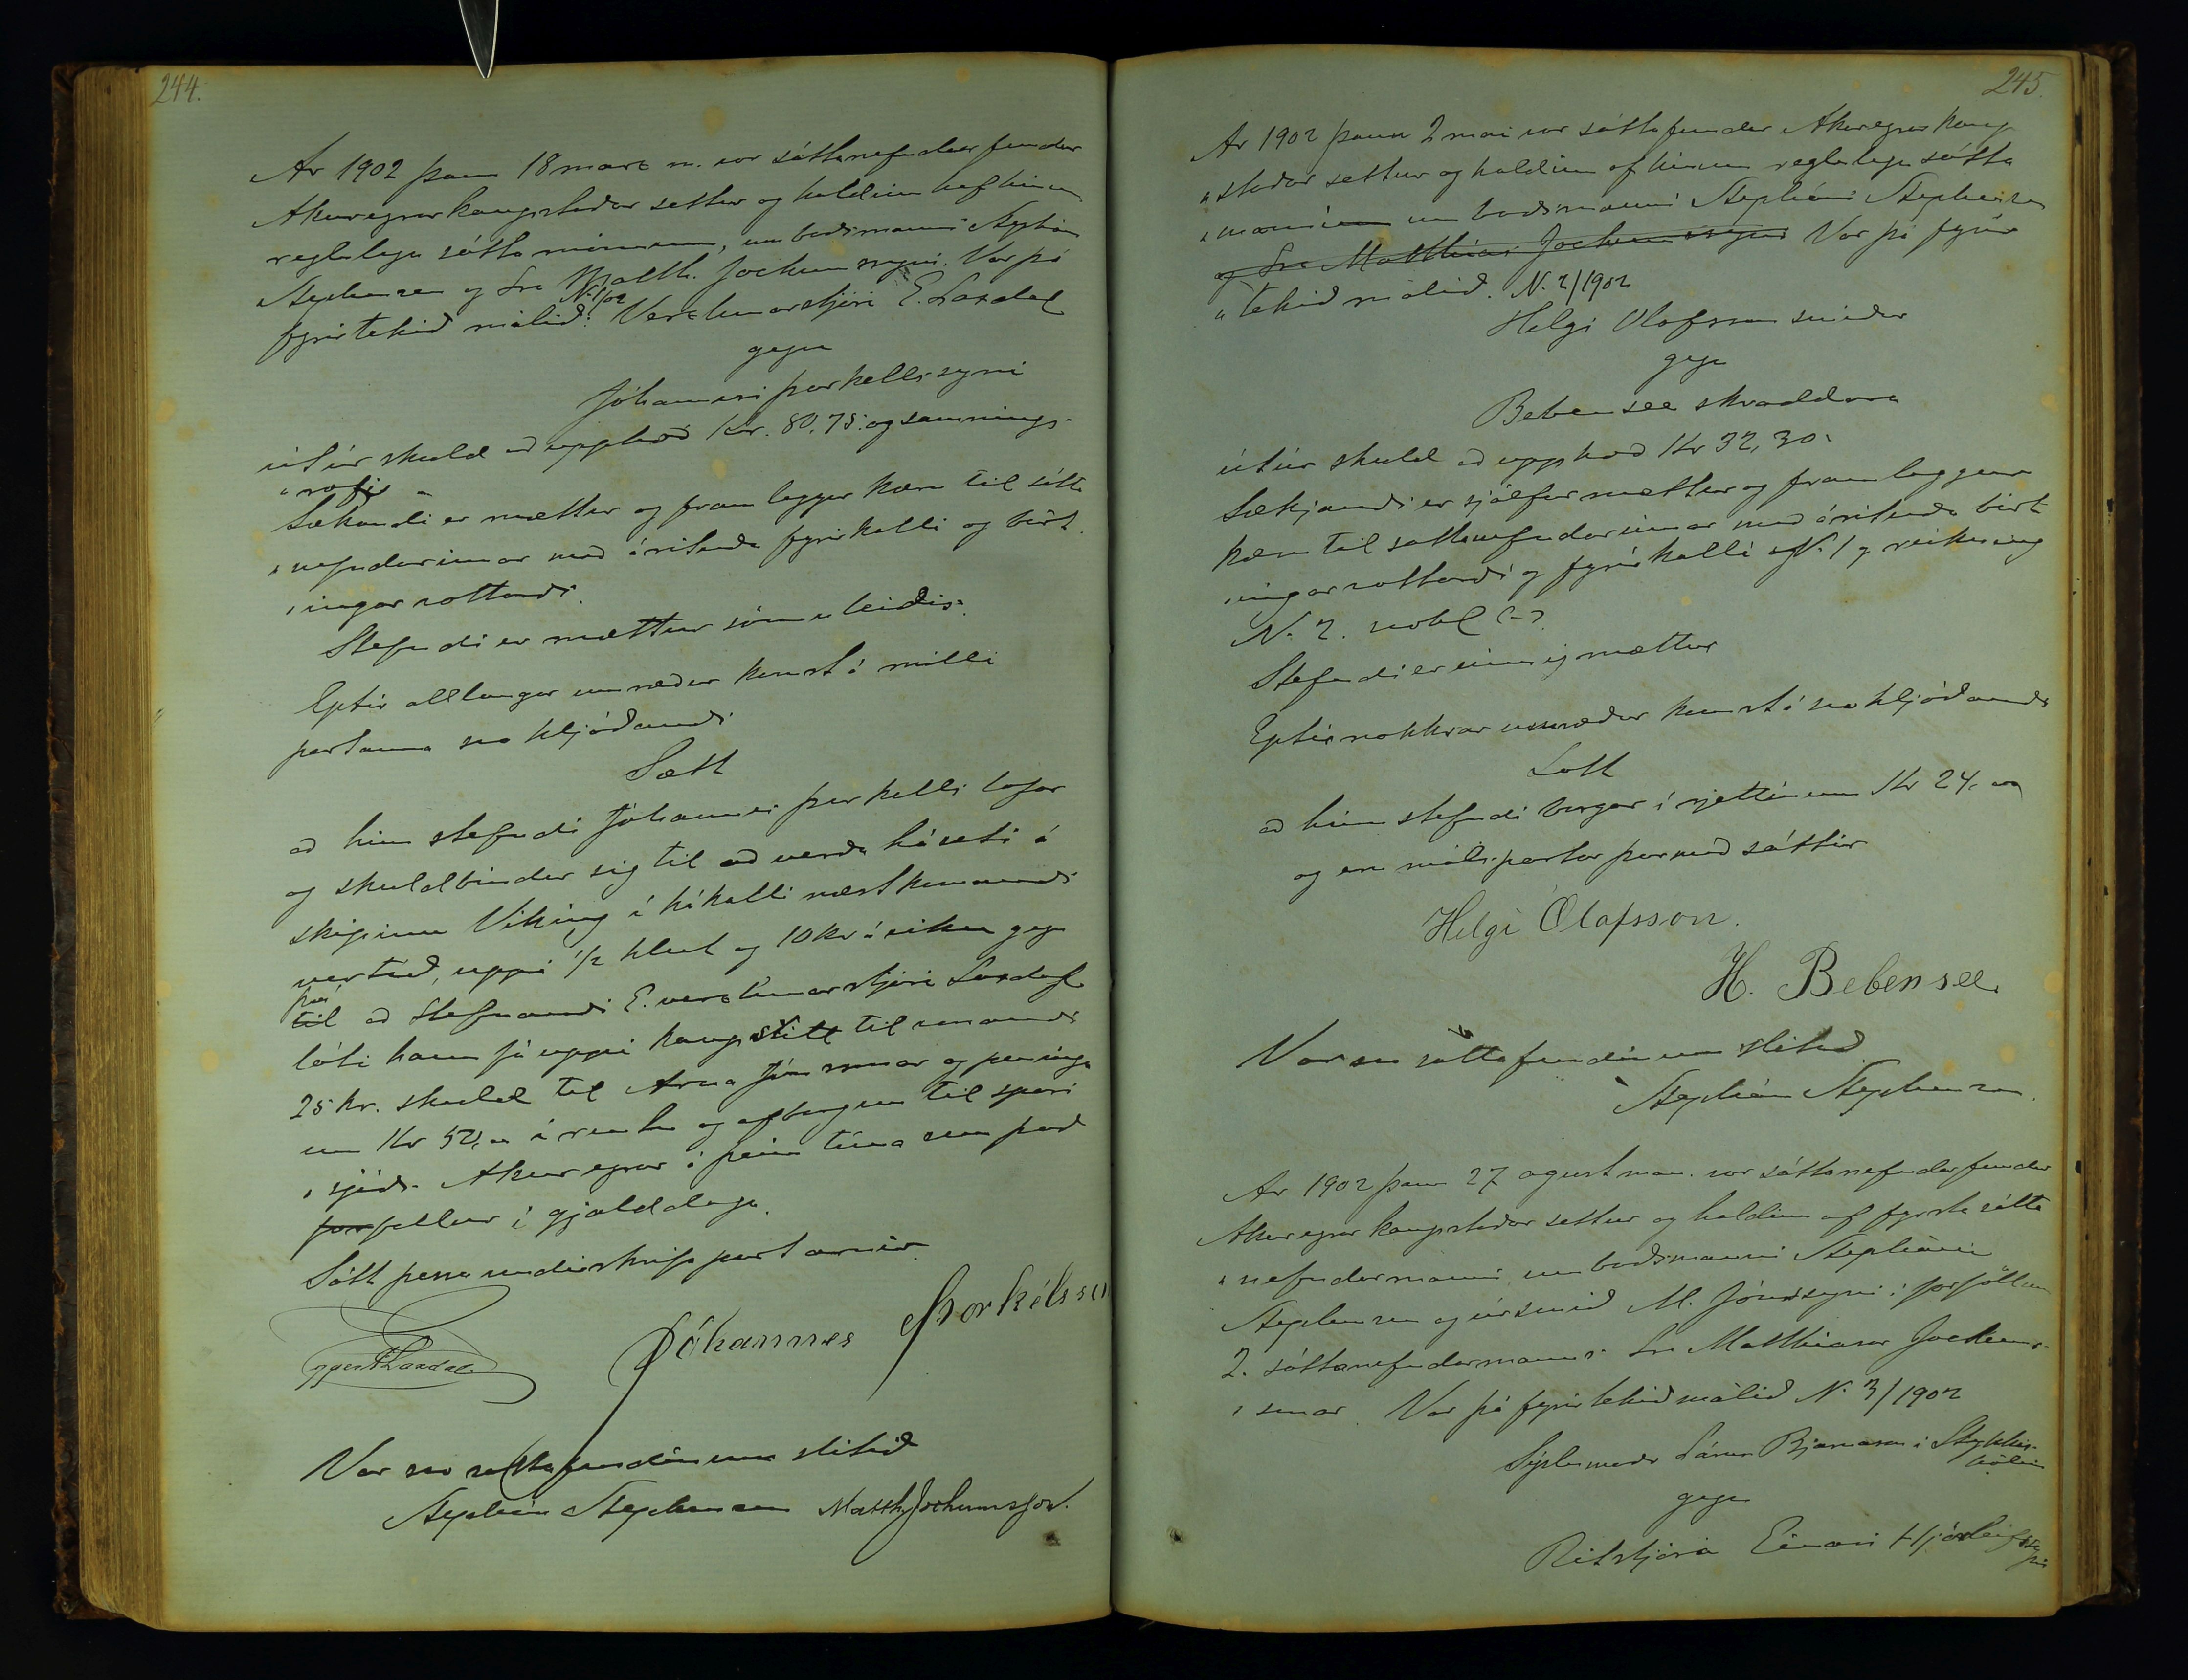 244.
Ar 1902 þann 18 marz m. var sáttanefndar fundur
Akureyrar kaupstaðar settur og haldinn af hinum
reglulegu sátta mönnum, umboðsmanni Stepháni
Stephensen og Sra Matth. Jochumssyni. Var þá
N. 1/02
fyrirtekið málið: Verzlunarstjóri E. Laxdal
gegn
Jóhannesi Þorkellssyni
útúr skuld að upphæð Kr. 80,75. og samnings-
"rofi
Sækandi er mættur og framleggur kæru til sátta
"nefndarinnar með árituðu fyrirkalli og birt
"ingar vottorði.
Stefndi er mættur sömuleiðis.
Eptir alllangar umræður komst á milli
partanna svo hljóðandi
Sætt
að hinn stefndi Jóhannes Þorkellss lofar
og skuldbindur sig til að verða háseti á
skipinu Viking í hákalli næstkomandi
vertíð, uppá 1/2 hlut og 10 kr á viku gegn
því
til að Stefnandi E. verzlunarstjóri Laxdal
láti hann fá uppá kaup sitt tilsvarandi
25 kr. skuld til Arna Jónssonar og peninga
um Kr 52,00 í rentu og afborgun til spari
"sjóðs Akureyrar á þeim tíma sem það
for fellur í gjalddaga.
Sátt þessa undirskrifa partarnir
Eggert Laxdal
Jóhannes Þorkélsson
Var svo sáttafundinum slitið
Stephán Stephensen Matth. Jochumsson.
245.
Ar 1902 þann 2 mai var sáttafundur Akureyrar kaup
"staðar settur og haldinn af hinum reglulegu sátta
"manni umboðsmanni Stepháni Stephensen
og Sra Matthíasi Jochumssyni Var þá fyrir
"tekið málið. N. 2/1902
Helgi Olafsson smiður
gegn
Bebensee skraddara
útúr skuld að upphæð Kr 32,30.
Sækjandi er sjálfur mættur og framleggur
kæru til sáttanefndarinnar með árituðu birt
"ingarvottorði og fyrirkalli N. 1 og reikning
N. 2.
Stefndi er einnig mættur
Eptir nokkrar umræður komst á svo hljóðandi
Sátt
að hinn stefndi borgar í rjettinum Kr 24,00
og eru málspartar þarmeð sáttir
Helgi Ólafsson.
H. Bebensee.
Var svo sáttafundinum slitið
Stephán Stephensen.
Ar 1902 þann 27 agust man. var sáttanefndarfundur
Akureyrar kaupstaðar settur og haldinn af fyrsta sátta
"nefndarmanni umboðsmanni Stepháni
Stephensen og úrsmið M. Jónssyni í forföllum
2. sáttanefndarmanns Sra Matthíasar Jochums-
"sonar. Var þá fyrirtekið málið N. 3/1902
Sýslumaðr Lárus Bjarnason í Stykkis-
hólmi
gegn
Ritstjóra Einari Hjörleifssyni